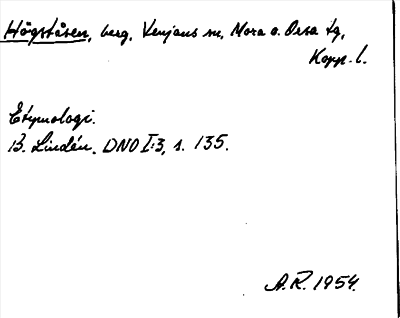 Högståsen, berg, Venjans sn, Mora o. Orsa tg,
Kopp. l.
Etymologi.
B. Lindén, DNO I:3, s. 135.
A.R. 1954.